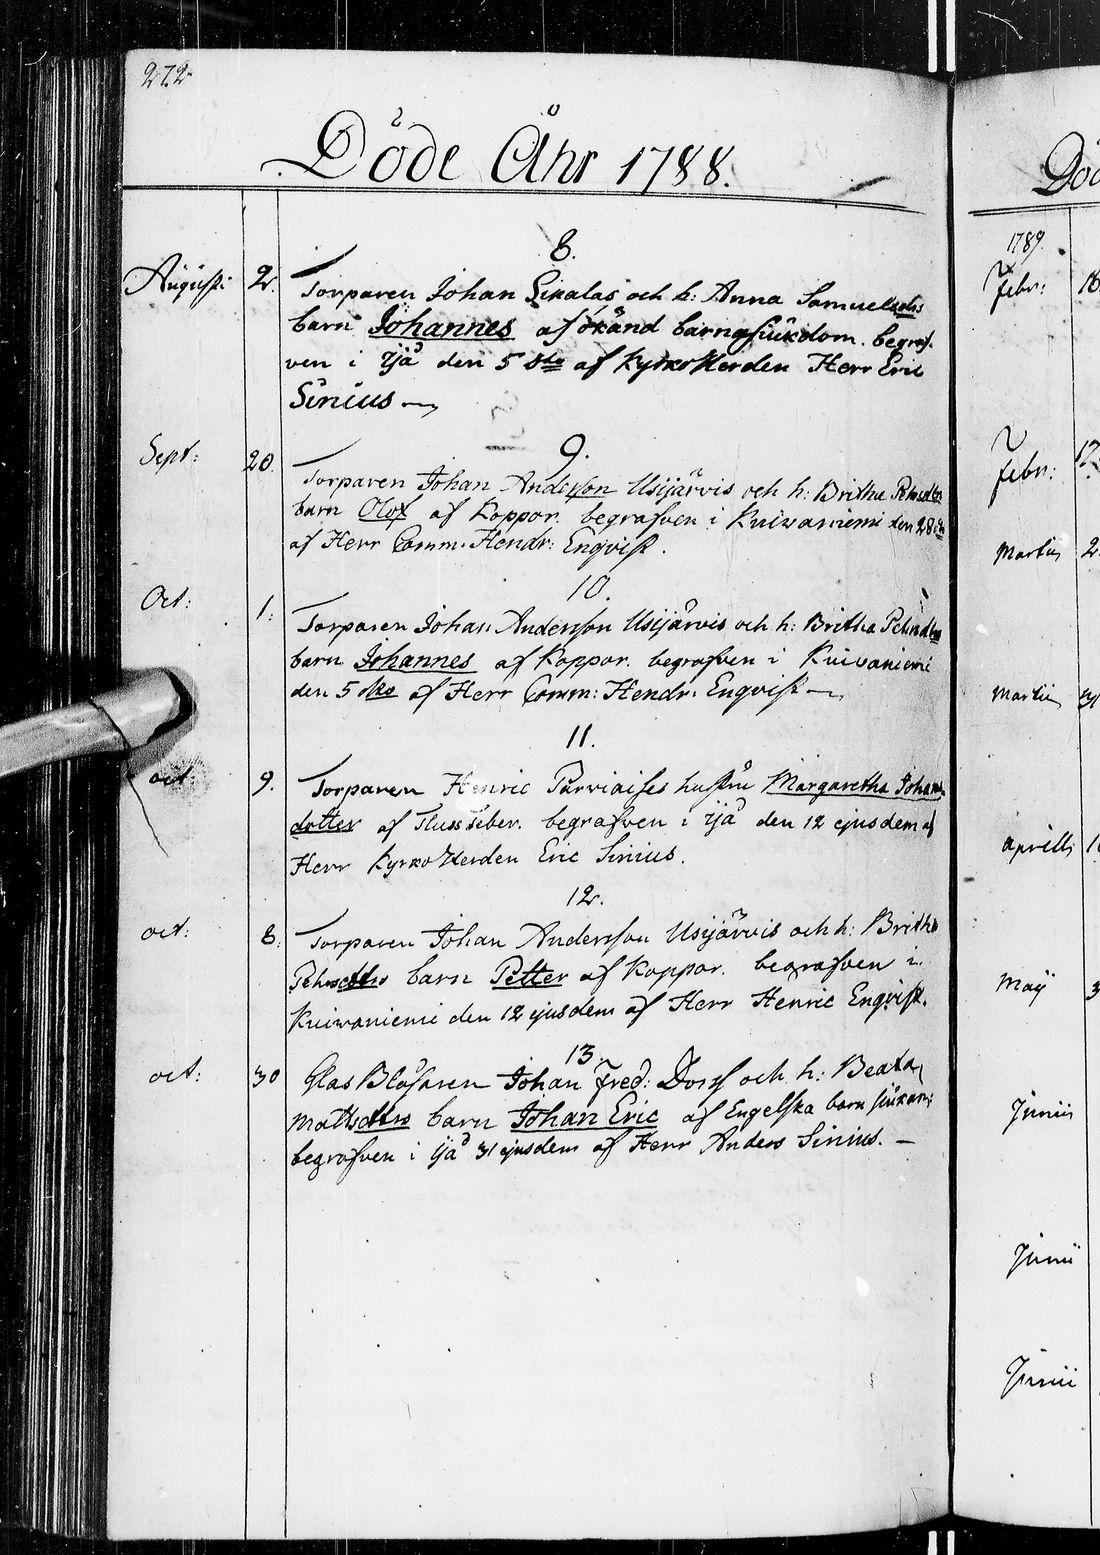 272
Döde Åhr 1788.
8.
Augusti 2. Torparen Johan Sikalas och h: Anna Samuelsdrs
barn Johannes af okänd barnasiukdom. begraf-
ven i Ijå den 5 dto af KyrkoHerden Herr Eric
Sinius
9.
Sept: 20. Torparen Johan Andersson Usijärvis och h: Britha
barn Olof af Koppor. begrafven i Kuivaniemi den 28
af Herr Comm: Hendr: Enqvist.
10.
Oct: 1. Torparen Johan Andersson Usijärvis och h: Britha
barn Johannes af Koppor. begrafven i Kuivaniemi
den 5 dto af Herr Comm: Hendr: Enqvist
11.
oct 9. Torparen Henric Parviaises hustru Margaretha Johans
dotter af Flussfeber. begrafven i Ijå den 12 ejusdem af
Herr KyrkoHerden Eric Sinius.
12.
oct: 8. Torparen Johan Andersson Usijärvis och h: Britha
barn Petter af Koppor. begrafven i
Kuivaniemi den 12 ejusdem af Herr Henric Enqvist.
13.
oct: 30 Glas Blåsaren Johan Fred: och h: Beata
Mattsdtrs barn Johan Eric af Engelska barn siukan:
begrafven i Ijå 31 ejusdem af Herr Anders Sinius.
Död
1789.
Febr: 16
Febr: 17.
Martii 2
Martii 31
Aprill
Maij 3
Junii
Junii
Junii